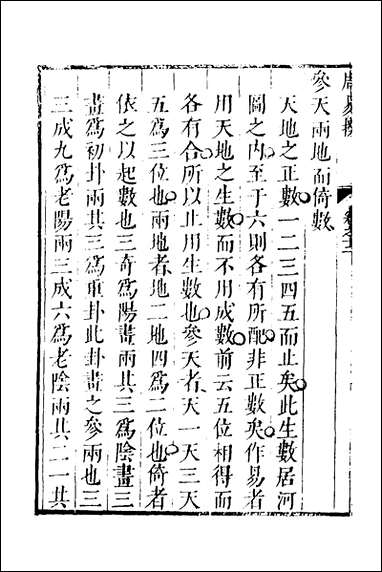 周易揆
參天兩地而倚數
天地之正數一二三四五而止矣此生數居河
圖之內至于六則各有所配非正數矣作易者
用天地之生數而不用成數前云五位相得而
各有合所以止用生數也參天者天一天三天
五爲三位也兩地者地二地四爲二位也倚者
依之以起數也三奇爲陽畫兩其三爲陰畫三
畫爲初卦兩其三爲重卦此卦畫之參兩也三
三成九爲老陽兩三成六爲老陰兩其二一其